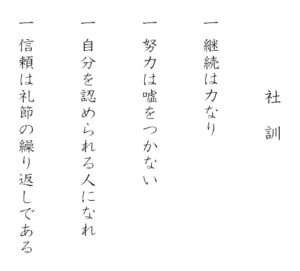 社訓
一 継続は力なり
一 努力は嘘をつかない
一 自分を認められる人になれ
一 信頼は礼節の繰り返しである